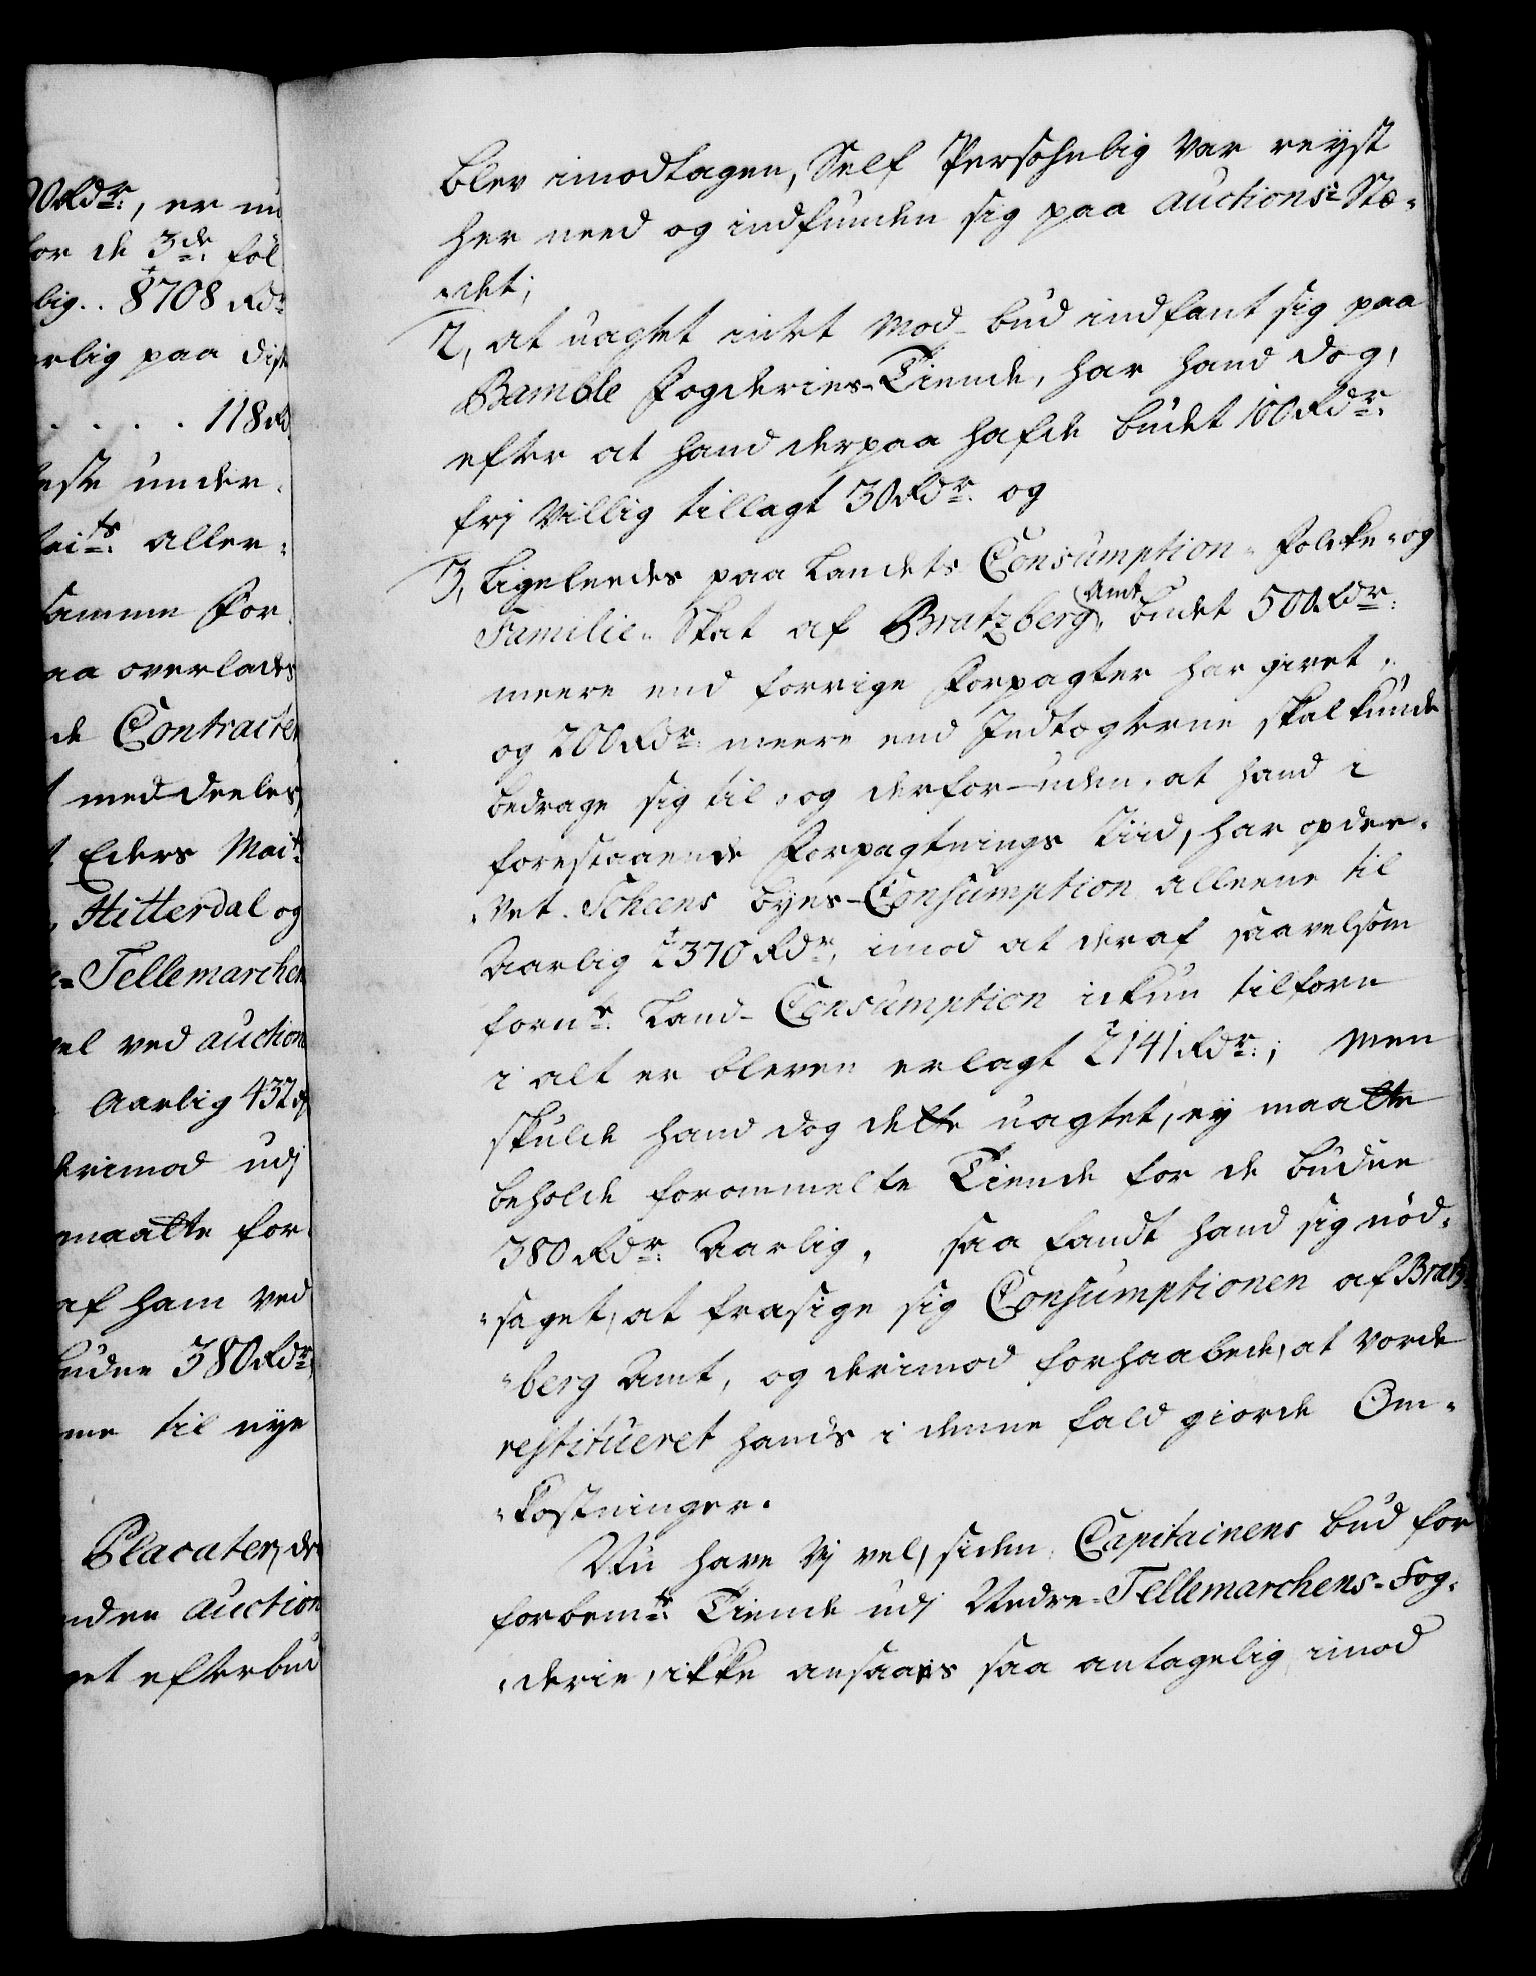 0 Rdr:, er nu
for de 3de:föl
lig.. 8708 Rdr
erlig paa diss
. . . . 118 Rd
este under-
Mai.ts aller-
samme For-
aa overlades
de Contracter
t meddeeles,
t Eders Mait:
, Hitterdal og
e- Tellemarchen
vel ved auction
Aarlig 432 d
derimod udj
maatte for-
af ham ved
budne 380 Rdr:
me til nye
Placater, de
nden auction
get efterbud
blev imodtagen, Self Persohnlig var reyst
her need og indfunden sig paa auctions-Stæ-
-det;
2, at uagtet intet Mod-bud indfant sig paa
Bamble Fogderies-Tiende, har hand dog,
efter at hand derpaa hafde budet 100 Rdr:
frj villig tillagt 30 Rdr: og
3, Ligeleedes paa Landets Consumption- Folcke- og
Familie- Skat af Bratzberg Amt budet 500 Rdr:
meere end forrige Forpagter har givet,
og 200 Rdr: meere end Indtægterne skal kunde
bedrage sig til, og derfor-uden, at hand i
forestaaende Forpagtnings Tiid, har opdre-
-vet Scheens byes-Consumption alleene til
Aarlig 2370 Rdr, imod at deraf saavelsom
fornte: Land-Consumption ickun tilforn
i alt er bleven erlagt 2141 Rdr:; Men
skulde hand dog dette uagtet, ey maatte
beholde forommelte Tiende for de budne
380 Rdr: Aarlig, saa fandt hand sig nöd-
-saget, at frasige sig Consumptionen af Bratz-
-berg Amt, og derimod forhaabede, at vorde
restitueret hands i denne fald giorde Om-
-kostninger.
Nu have Vj vel, siden Capitainens bud for
forbemte: Tiende udj Nedre-Tellemarchens-Fog-
-derie, ikke ansaaes saa antagelig imod